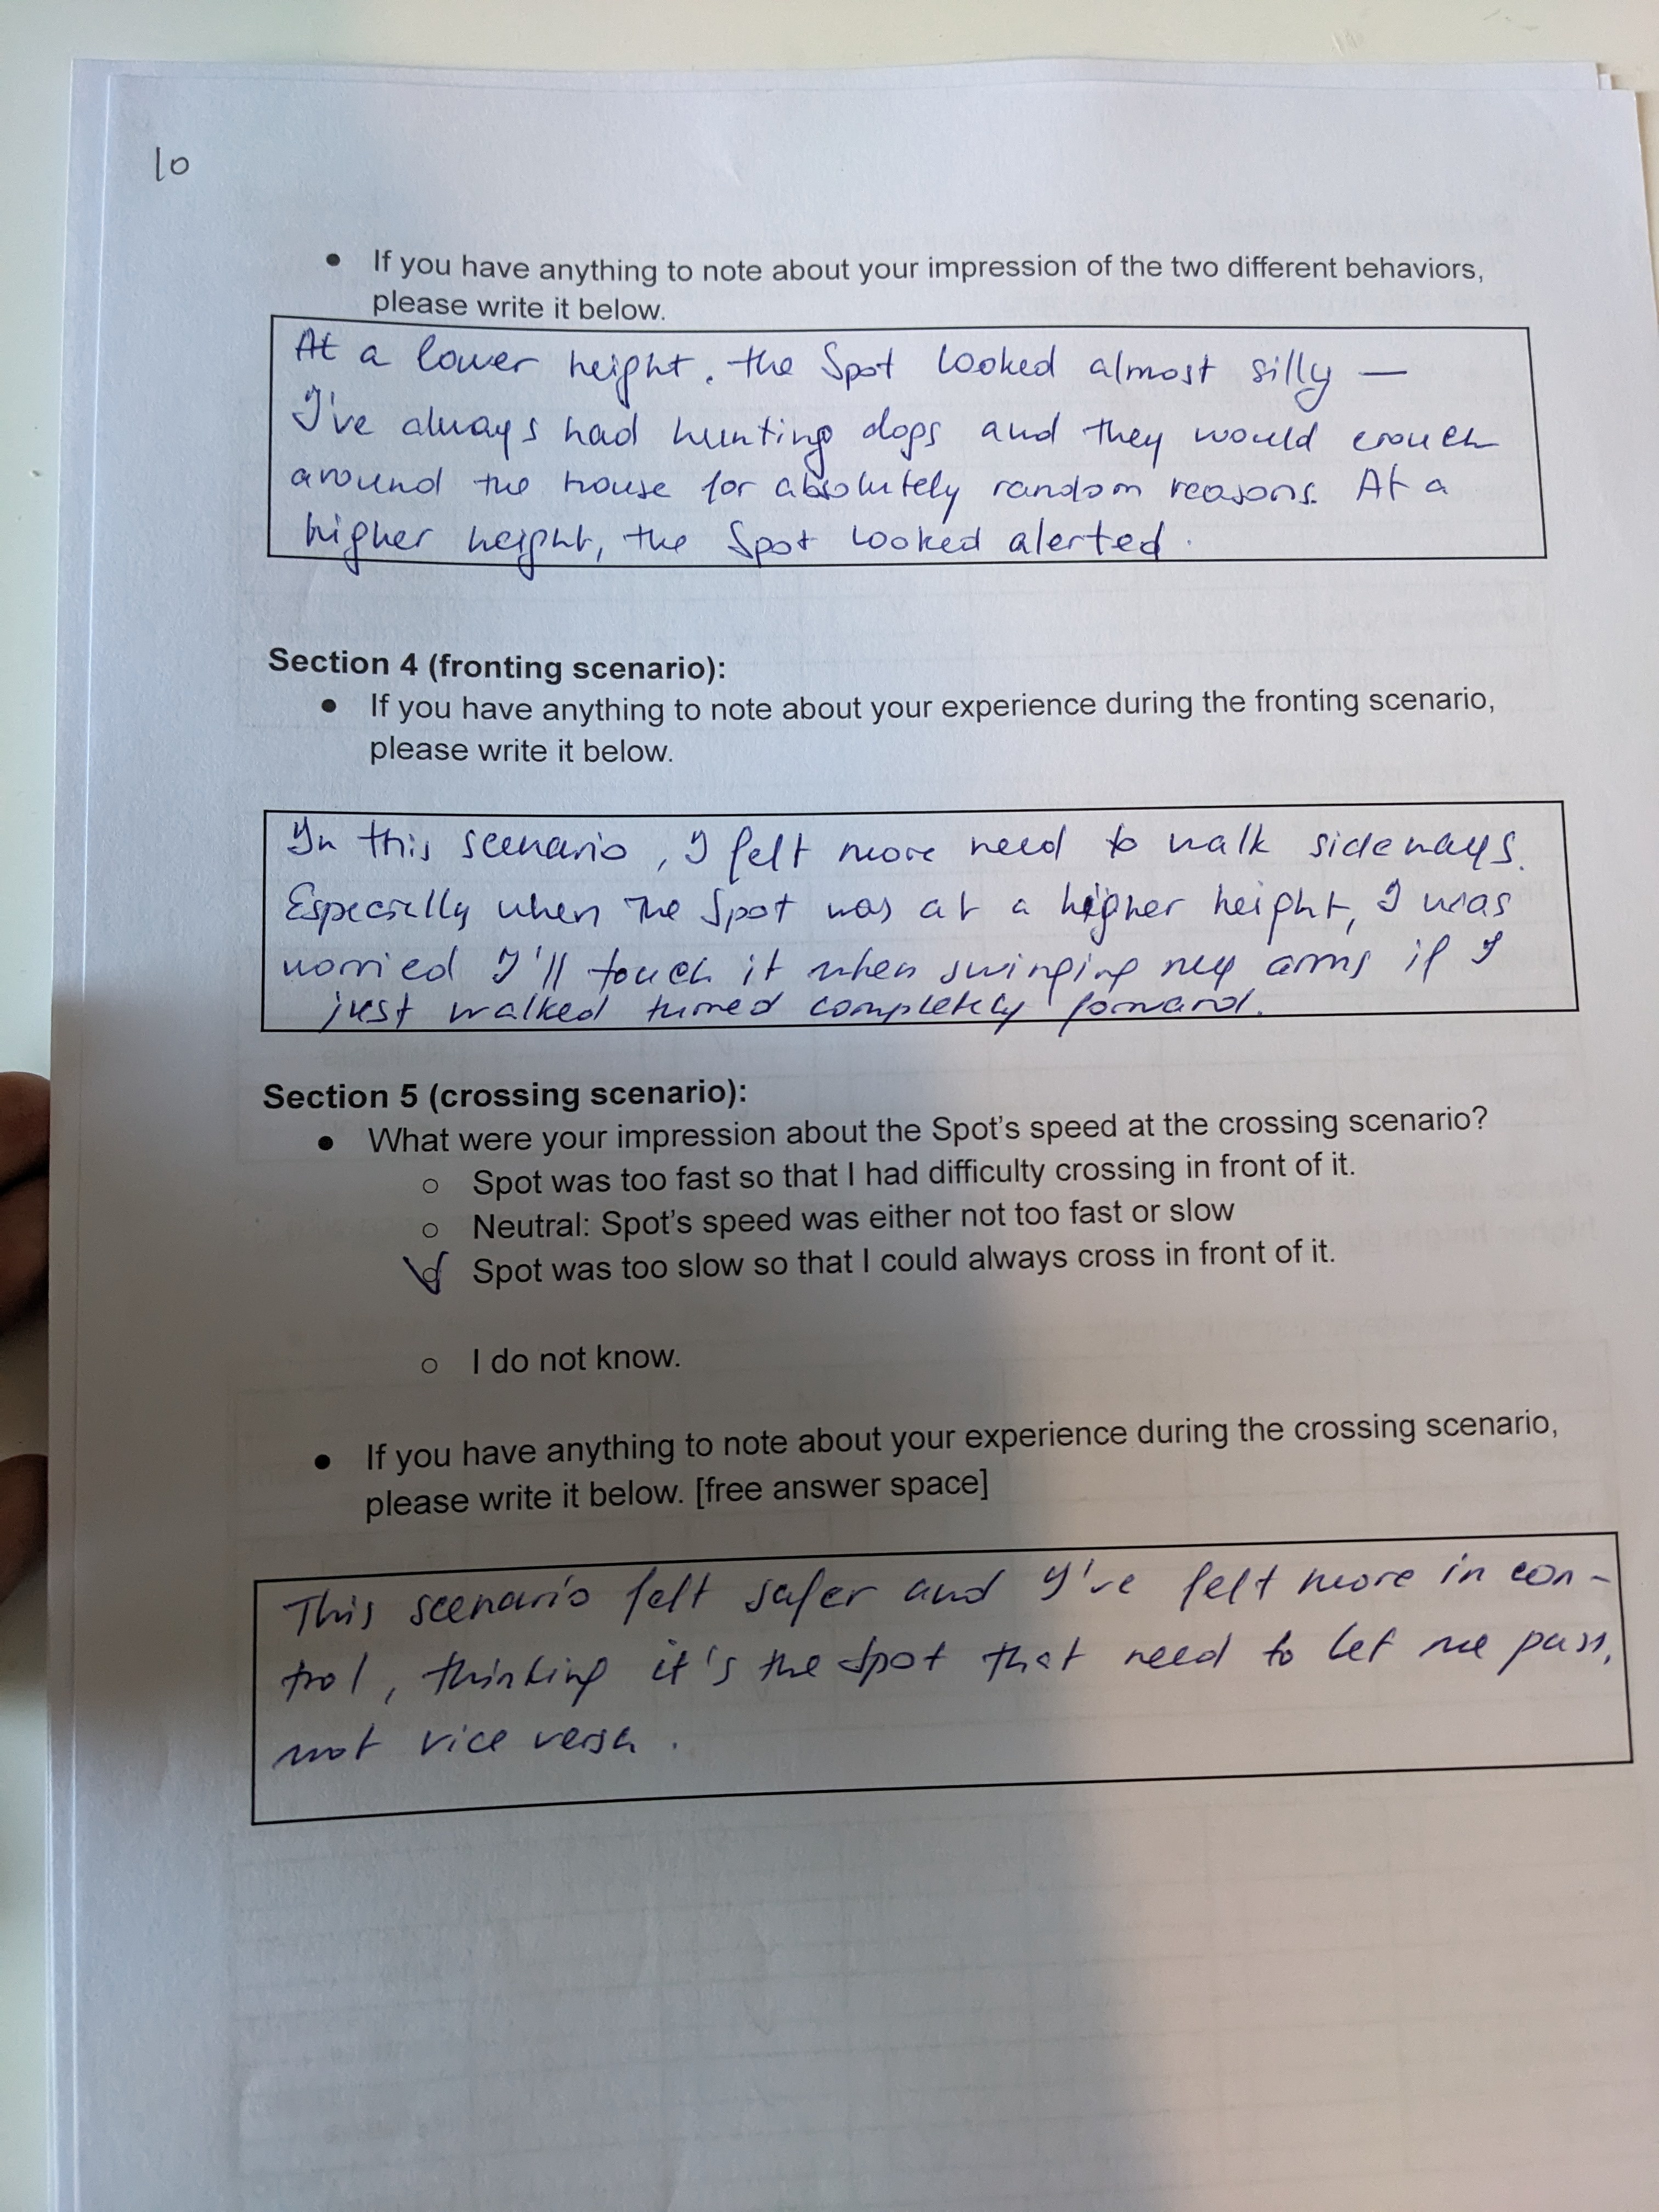 10
• If you have anything to note about your impression of the two different behaviors,
please write it below.
At a lower height, the Spot looked almost silly —
I've always had hunting dogs and they would crouch
around the house for absolutely random reasons. At a
higher height, the Spot looked alerted.
Section 4 (fronting scenario):
• If you have anything to note about your experience during the fronting scenario,
please write it below.
In this scenario, I felt more need to walk sideways.
Especially when the Spot was at a higher height, I was
worried I'll touch it when swinging my arms if I
just walked turned completely forward.
Section 5 (crossing scenario):
• What were your impression about the Spot's speed at the crossing scenario?
○ Spot was too fast so that I had difficulty crossing in front of it.
○ Neutral: Spot's speed was either not too fast or slow
○ Spot was too slow so that I could always cross in front of it.
○ I do not know.
• If you have anything to note about your experience during the crossing scenario,
please write it below. [free answer space]
This scenario felt safer and I've felt more in con-
trol, thinking it's the Spot that need to let me pass,
not vice versa.